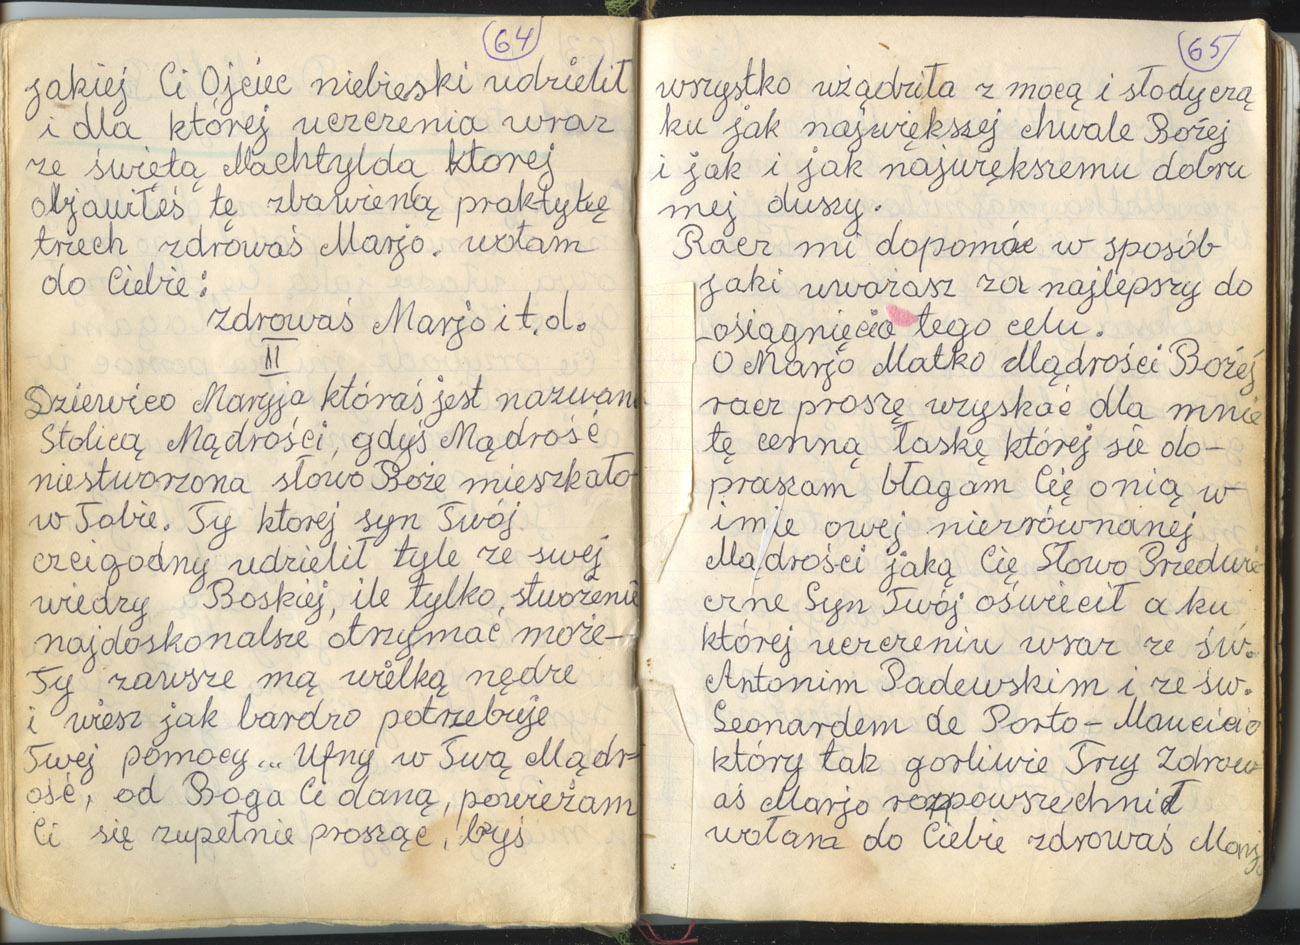 64
jakiej Ci Ojciec niebieski udzielił
i dla której uczczenia wraz
ze świetą Machtyldą ktorej
objawiłeś tę zbawieną praktykę
trzech zdrowaś Marjo. wołam
do Ciebie:
zdrowaś Marjo i t.d.
II
Dziewico Maryja któraś jest nazwana
Stolicą Mądrości, gdyś Mądrość
niestworzona słowo Boże mieszkało
w Tobie. Ty ktorej syn Twój
czcigodny udzielił tyle ze swej
wiedzy Boskiej, ile tylko, stworzenie
najdoskonalsze otrzymać może-
Ty zawsze mą wielką nędze
i wiesz jak bardzo potrzebuje
Twej pomocy... Ufny w Twą Mądr-
ość, od Boga Ci daną, powierzam
Ci się zupełnie prosząc, byś
65
wszystko użądziła z mocą i słodyczą
ku jak największej chwale Bożej
i jak i jak największemu dobru
mej duszy.
Racz mi dopomóc w sposób
jaki uważasz za najlepszy do
osiągnięcia tego celu.
O Marjo Matko Mądrości Bożej
racz proszę wzyskać dla mnie
tę cenną łaskę której sie do-
praszam błagam Cię o nią w
imie owej niezrównanej
Mądrości jaką Cię Słowo Przedwie
czne Syn Twój oświecił a ku
której uczczeniu wraz ze św.
Antonim Padewskim i ze św.
Leonardem de Porto-Maucicio
który tak gorliwie Trzy Zdrow-
aś Marjo rozpowszechnił
wołam do Ciebie zdrowaś Marj